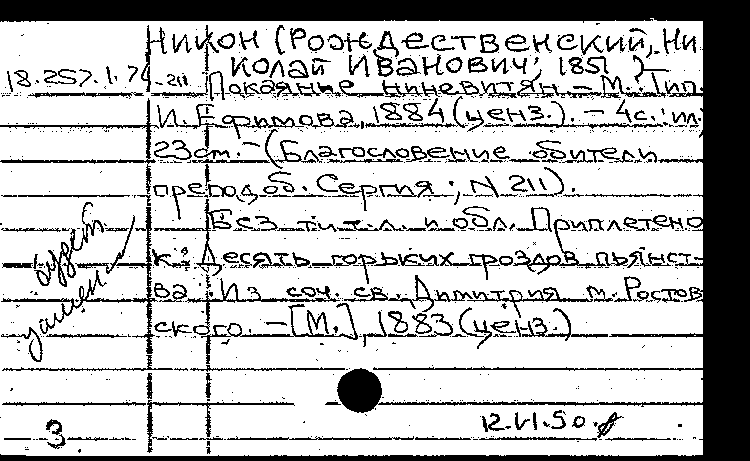 Никон (Рождественский, Ни
колай Иванович; 1851 )
18.257.1.74-211 Покаяние ниневитян. – М.: Тип.
И. Ефимова, 1884 (ценз.). – 4с.: ил;
23см. – (Благословение обители
преподоб. Сергия; N 211).
Без тит.л. и обл. Приплетено
к: Десять горьких гроздов пьянст-
ва: Из соч. св. Димитрия м. Ростов
ского. – [М.], 1883 (ценз.)
будет
3.
12.VI.50.